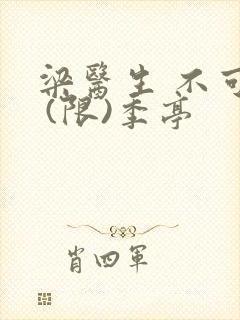 梁醫生 不可
(限)季亭
肖四軍